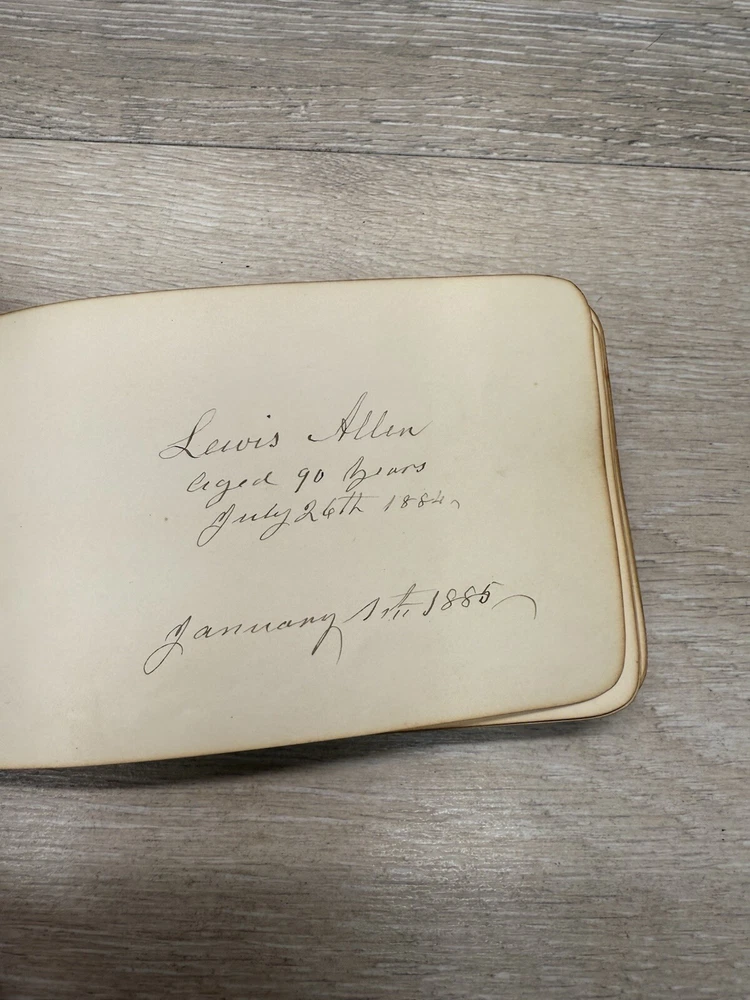 Lewis Allen
aged 90 Years
July 26th 1884
January 1th 1885